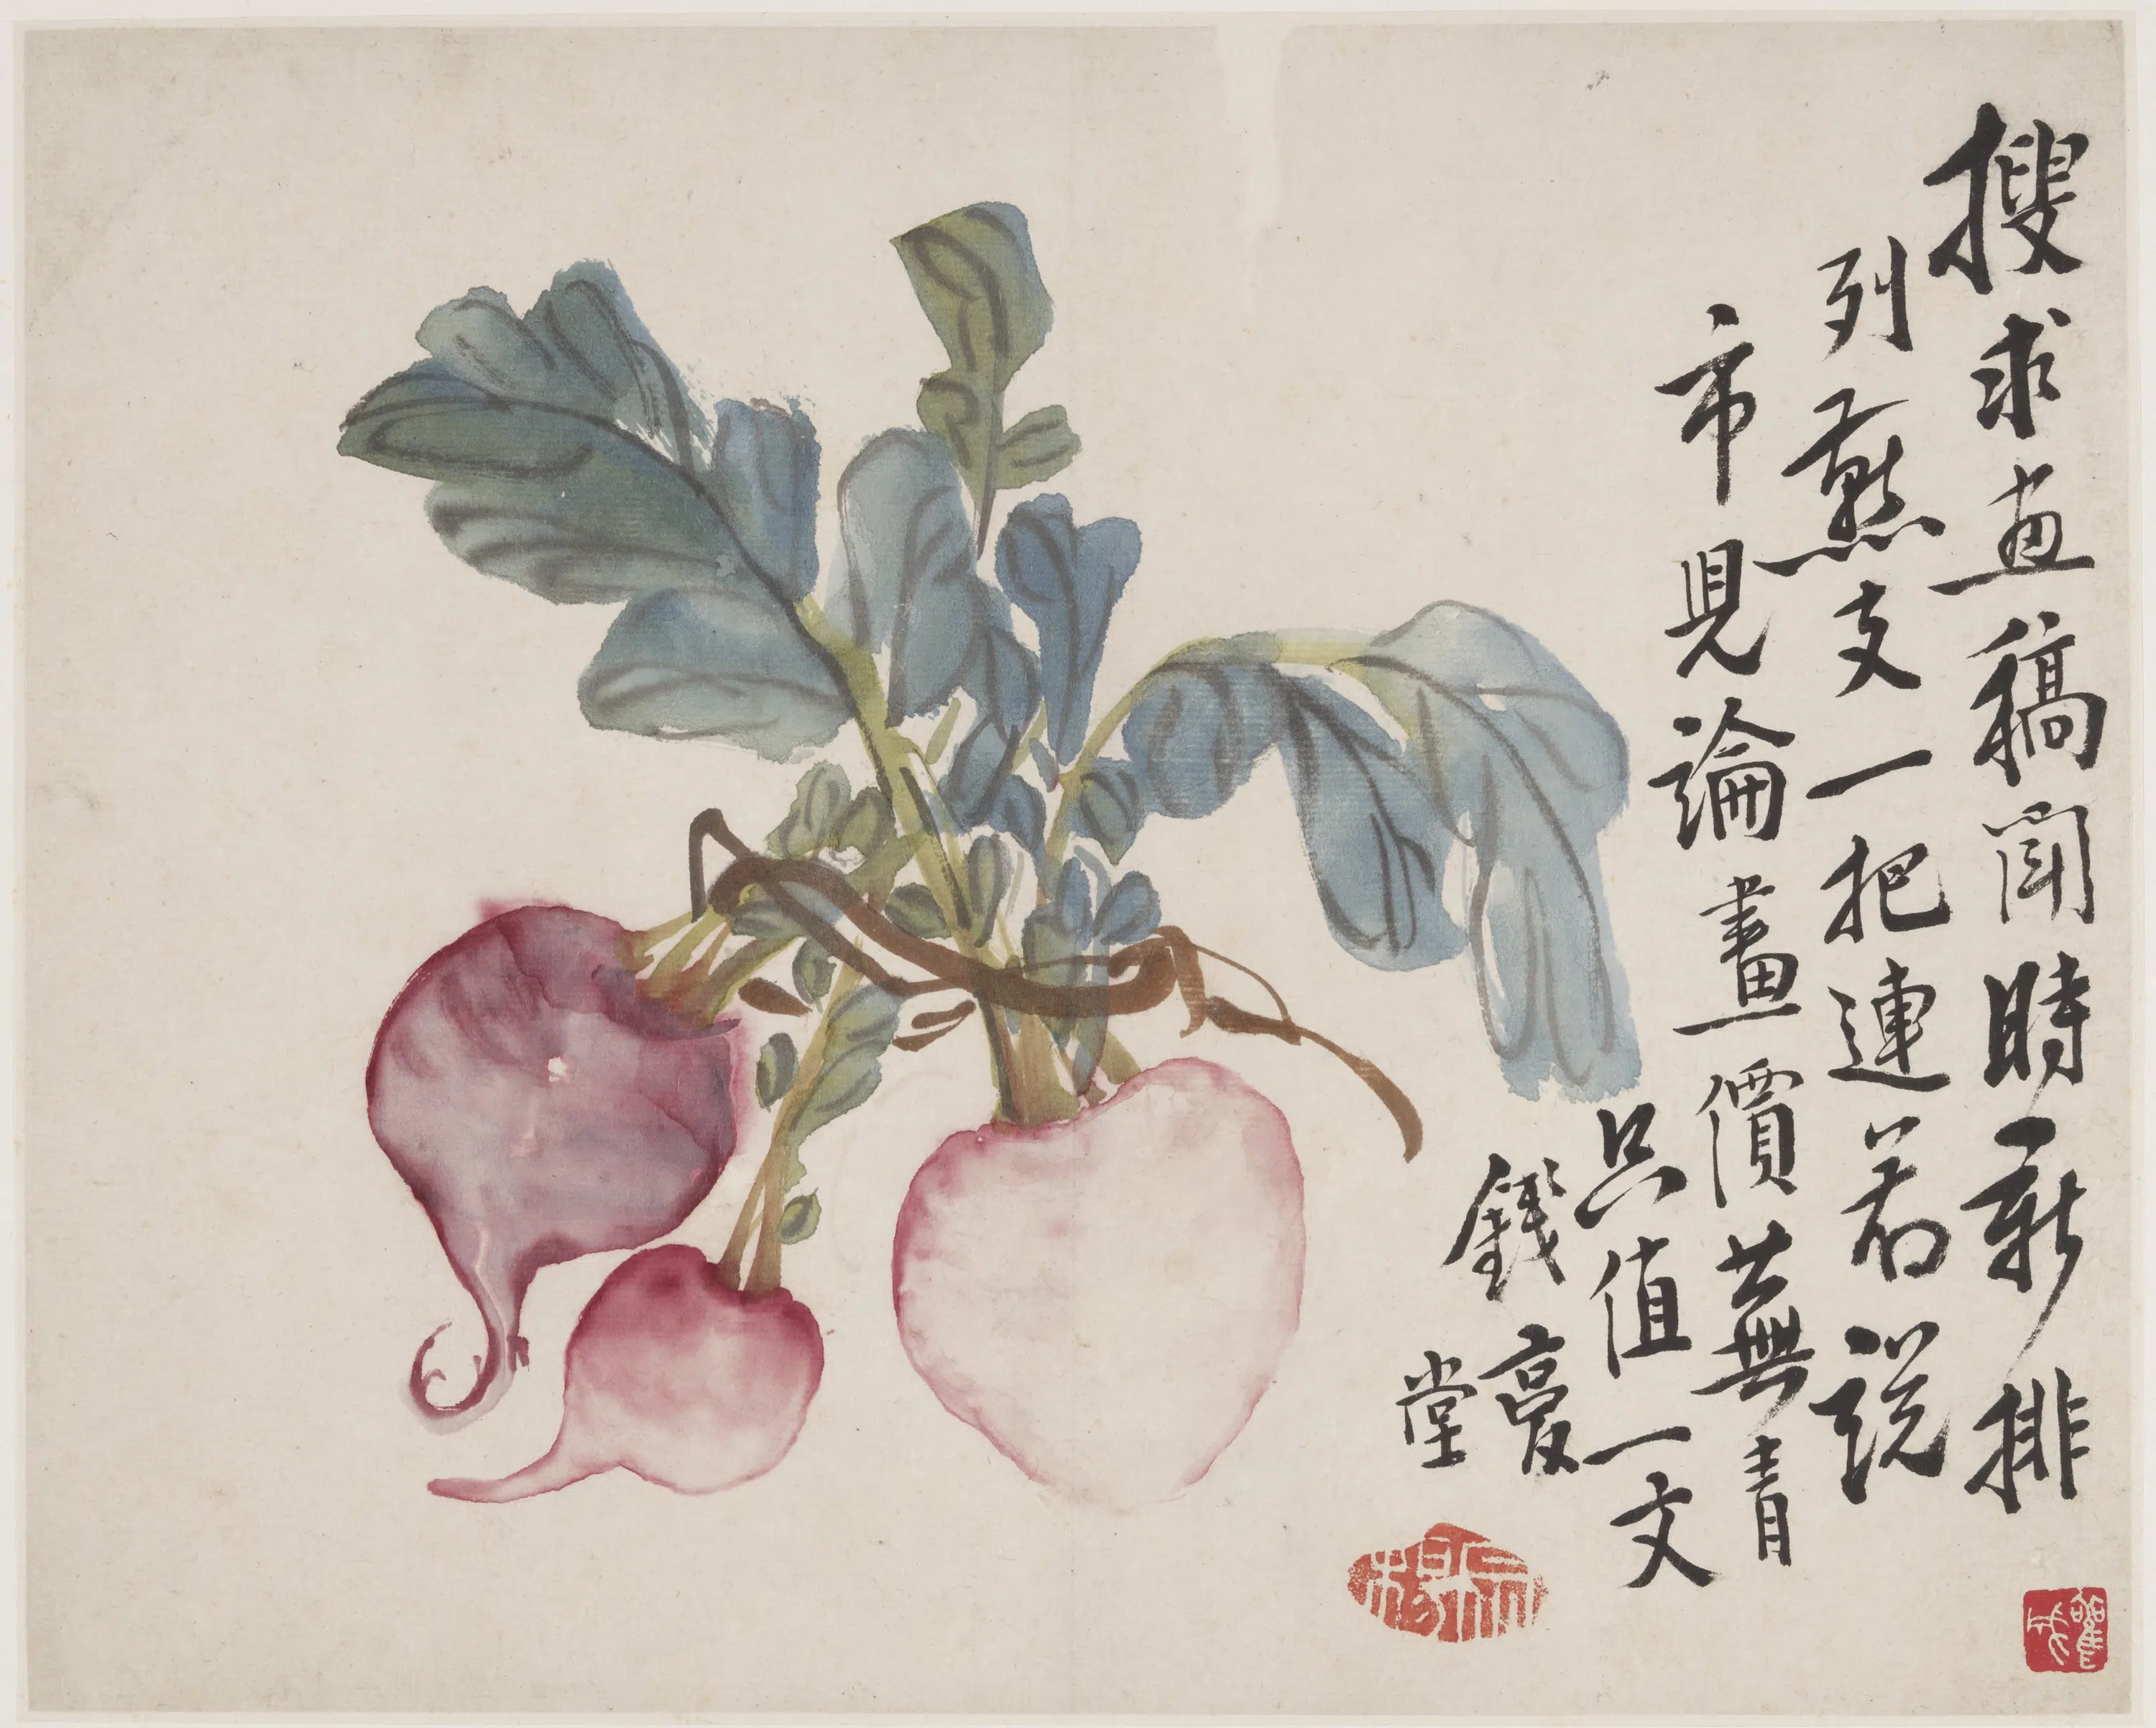 搜求画稿聞時新排
列燕支一把連若說
市兒論畫價蕪青
只值一文
錢
堂